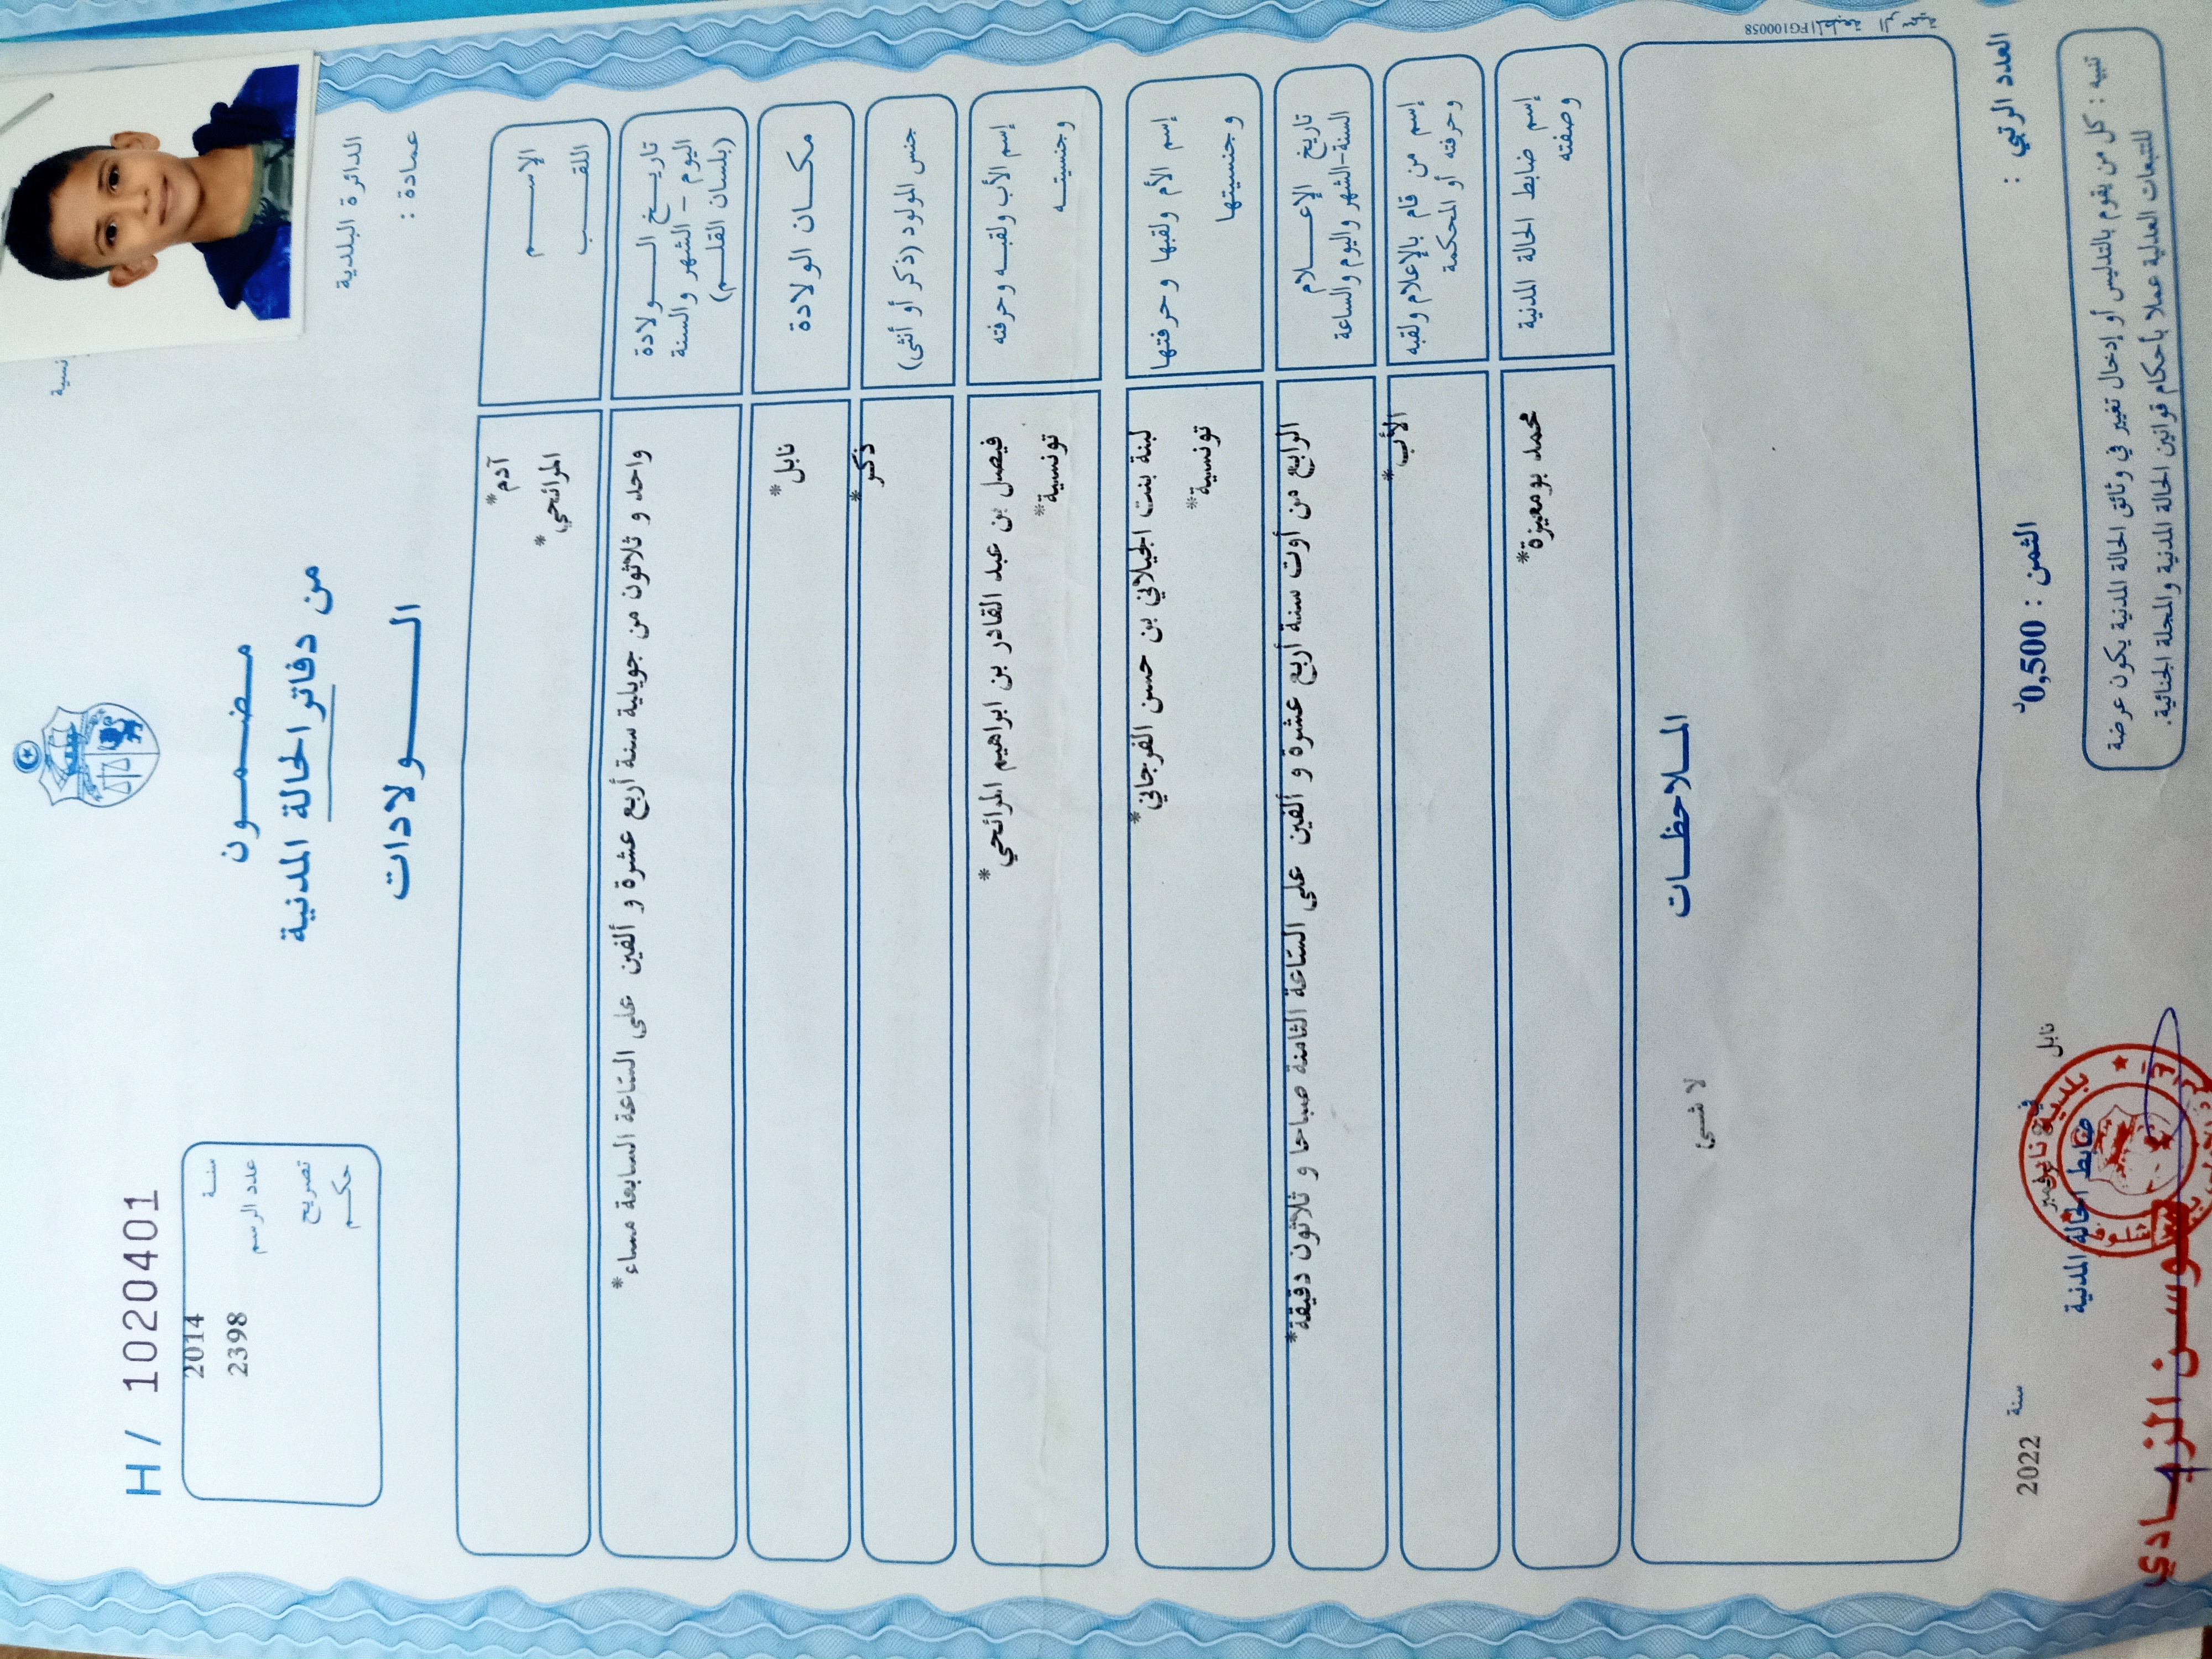 H / 1020401
سنة 2014
عدد الرسم 2398
تصريح
حكم
مضمون
من دفاتر الحالة المدنية
الولادات
الدائرة البلدية
عمادة :
الإسم
آدم*
اللقب
المرائحي*
تاريخ الولادة
اليوم - الشهر والسنة
(بلسان القلم)
واحد و ثلاثون من جويلية سنة أربع عشرة و ألفين على الساعة السابعة مساء*
مكان الولادة
نابل*
جنس المولود (ذكر أو أنثى)
ذكر*
إسم الأب ولقبه وحرفته
فيصل بن عبد القادر بن ابراهيم المرائحي*
وجنسيته
تونسية*
إسم الأم ولقبها وحرفتها
لبنة بنت الجيلاني بن حسن الفرجاني*
وجنسيتها
تونسية*
تاريخ الإعلام
السنة-الشهر واليوم والساعة
الرابع من أوت سنة أربع عشرة و ألفين على الساعة الثامنة صباحا و ثلاثون دقيقة*
إسم من قام بالإعلام ولقبه
وحرفته أو المحكمة
الأب*
إسم ضابط الحالة المدنية
وصفته
محمد بومعيزة*
الملاحظات
لا شئ
المطبعة الرسمية FG100058
العدد الرتبي :
الثمن : 0,500د
نابل في نوفمبر سنة 2022
ضابط الحالة المدنية
بلدية نابل
سوسن الزيادي
تنبيه : كل من يقوم بالتدليس أو إدخال تغيير في وثائق الحالة المدنية يكون عرضة
للتتبعات العدلية عملا بأحكام قوانين الحالة المدنية والمجلة الجنائية.